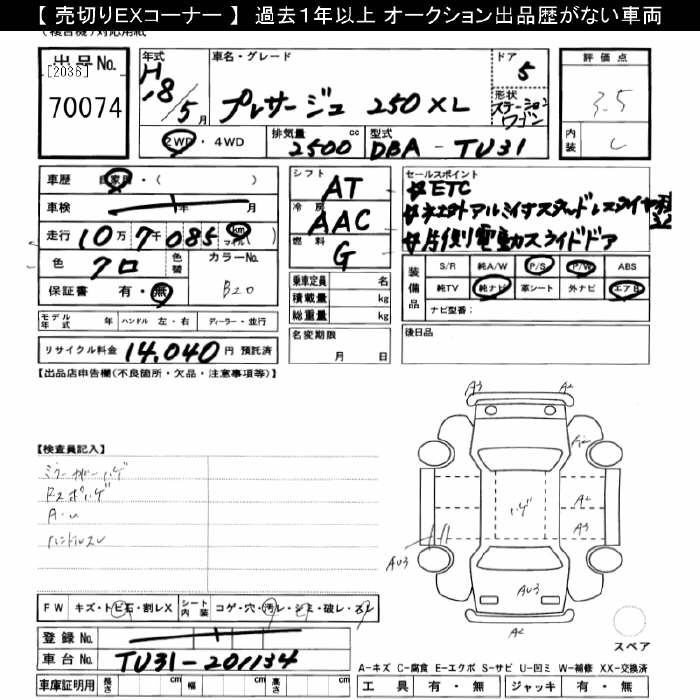 【 売切りEXコーナー 】 過去1年以上 オークション出品歴がない車両
出品No. [2036] 70074
年式 H18/5月 車名・グレード プレサージュ 250XL ドア 5 形状 ステーションワゴン
評価点 3.5 内装 C
2WD・4WD 排気量 2500 cc 型式 DBA-TU31
車歴 自家用・( )
車検 年 月
走行 10万7千085 km マイル
色 クロ 色替 カラーNo. B20
保証書 有・無
シフト AT
冷房 AAC
燃料 G
乗車定員 名
積載量 kg
総重量 kg
セールスポイント
#ETC
#片側電動スライドドア
装備品 S/R 純A/W P/S P/W ABS
純TV 純ナビ 革シート 外ナビ エアB
ナビ型番:
モデル年式 年 ハンドル 左・右 ディーラー・並行
名変期限 月 日
後日品
リサイクル料金 14,040 円 預託済
【出品店申告欄(不良箇所・欠品・注意事項等)】
【検査員記入】
ミラーカバーハゲ
Fスポハゲ
A・U
ハンドルスレ
A3 A2
A2
ハゲ A2
A3
AU3
AU3
A2
スペア
FW キズ・トビ石・割レX シート内装 コゲ・穴・汚レ・シミ・破レ・スレ
登録No.
車台No. TU31-201134
A-キズ C-腐食 E-エクボ S-サビ U-凹ミ W-補修 XX-交換済
車庫証明用 長さ cm 幅 cm 高さ cm
工具 有・無 ジャッキ 有・無